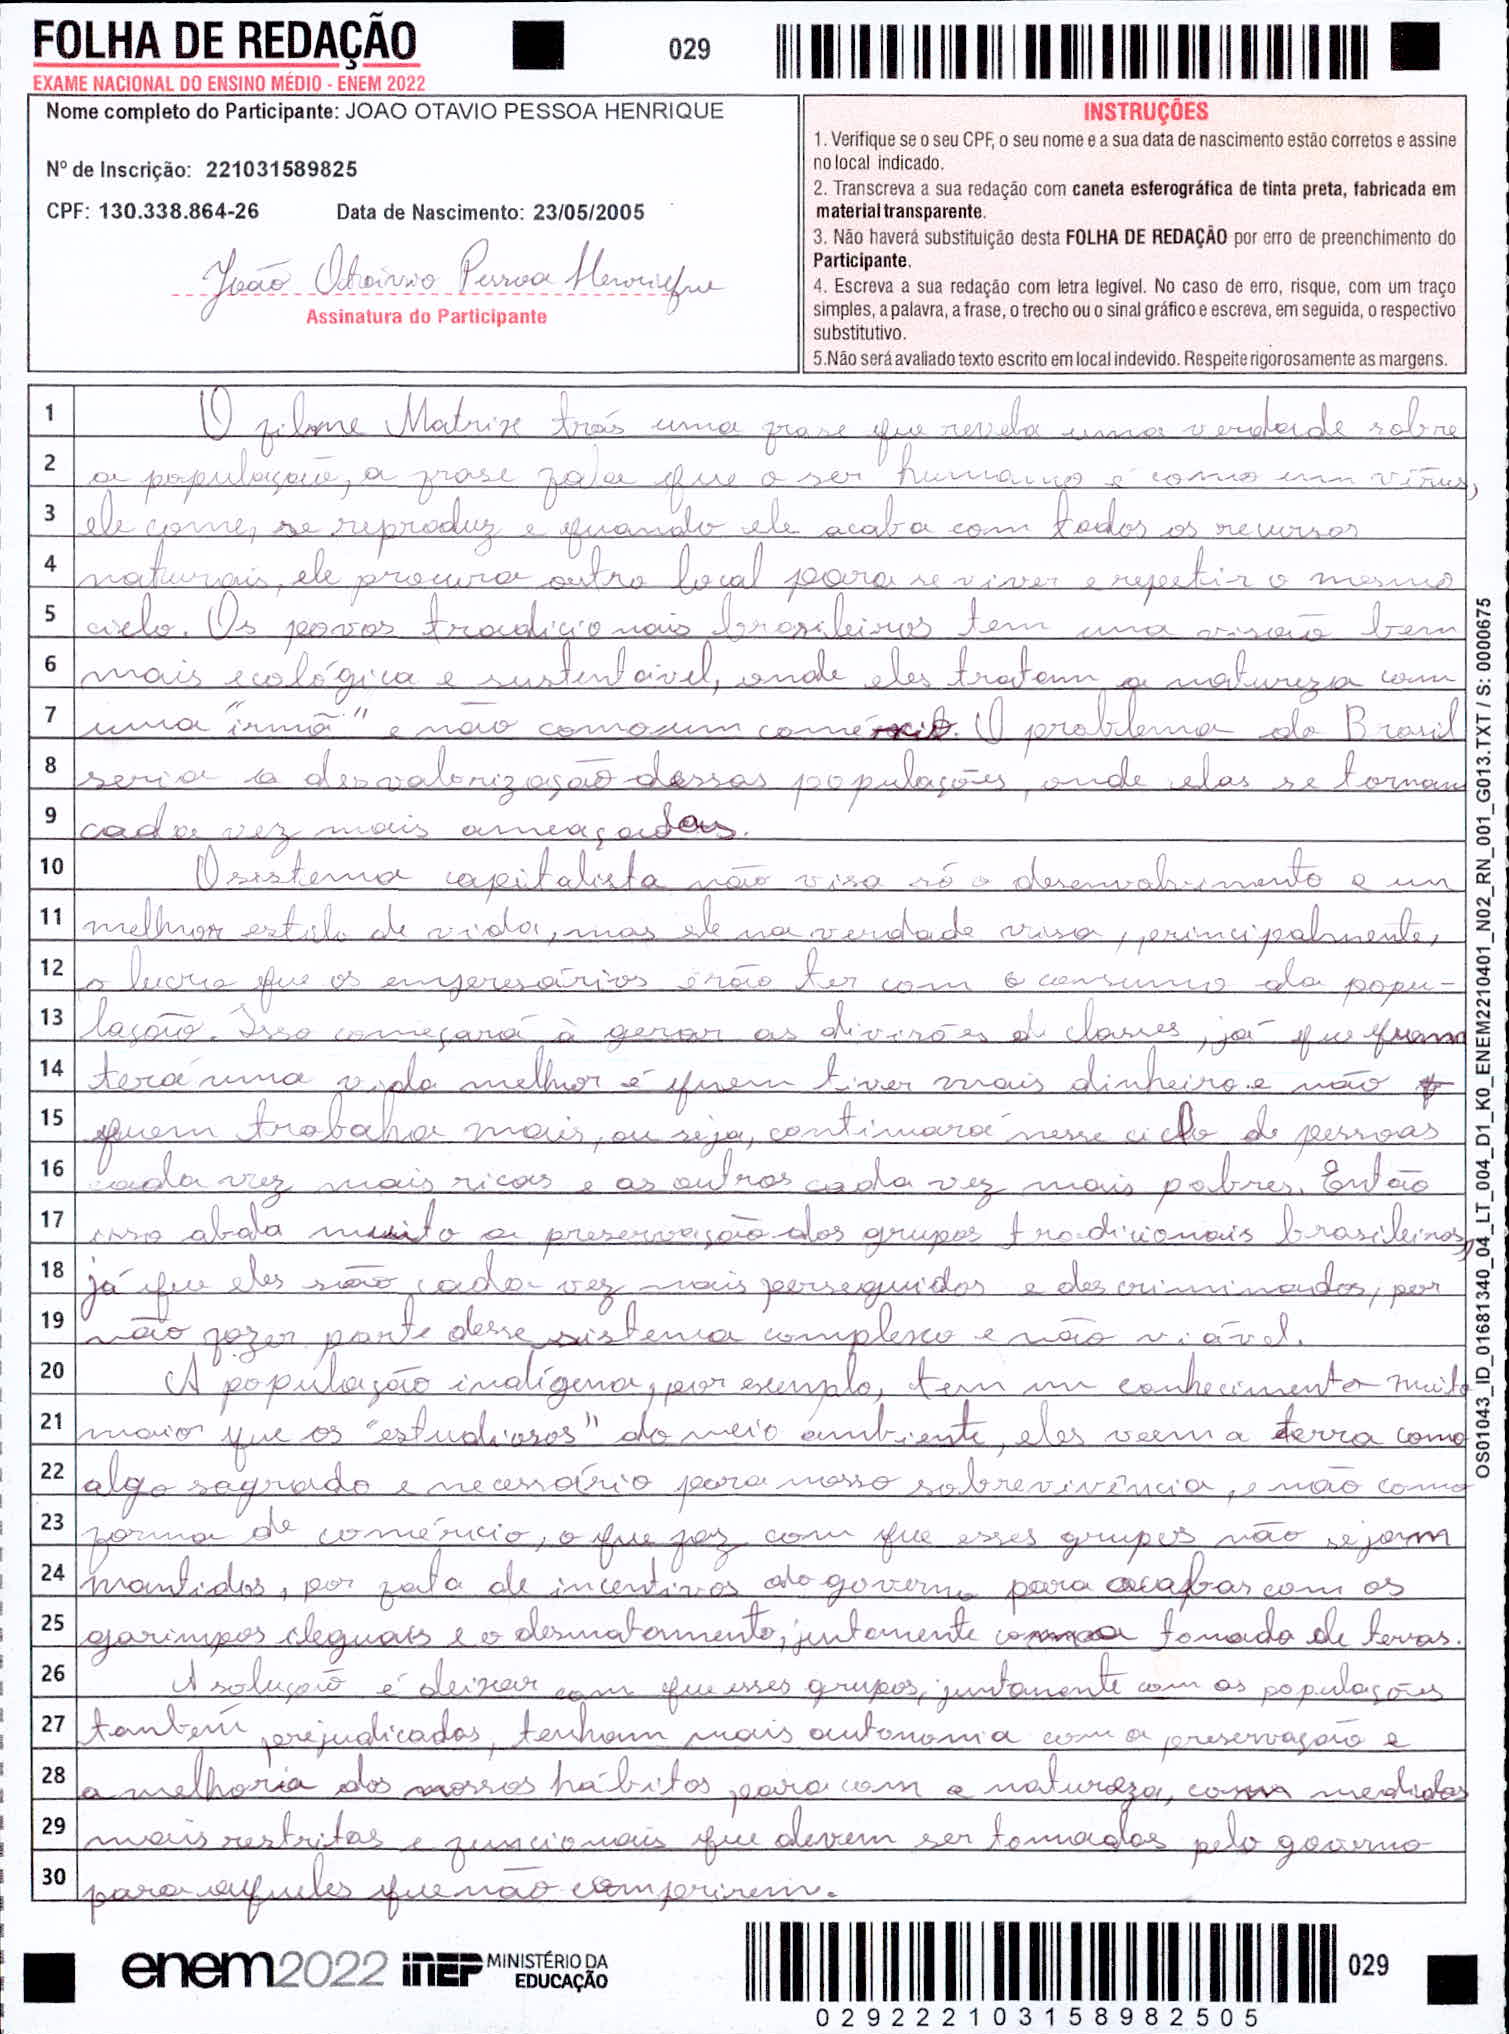 FOLHA DE REDAÇÃO
029
EXAME NACIONAL DO ENSINO MÉDIO - ENEM 2022
Nome completo do Participante: JOAO OTAVIO PESSOA HENRIQUE
Nº de Inscrição: 221031589825
CPF: 130.338.864-26 Data de Nascimento: 23/05/2005
João Otávio Pessoa Henrique
Assinatura do Participante
INSTRUÇÕES
1. Verifique se o seu CPF, o seu nome e a sua data de nascimento estão corretos e assine
no local indicado.
2. Transcreva a sua redação com caneta esferográfica de tinta preta, fabricada em
material transparente.
3. Não haverá substituição desta FOLHA DE REDAÇÃO por erro de preenchimento do
Participante.
4. Escreva a sua redação com letra legível. No caso de erro, risque, com um traço
simples, a palavra, a frase, o trecho ou o sinal gráfico e escreva, em seguida, o respectivo
substitutivo.
5.Não será avaliado texto escrito em local indevido. Respeite rigorosamente as margens.
1 O filme Matrix trás uma frase que revela uma verdade sobre
2 a população, a frase fala que o ser humano é como um vírus,
3 ele come, se reproduz e quando ele acaba com todos os recursos
4 naturais, ele procura outro local para se viver e repetir o mesmo
5 ciclo. Os povos tradicionais brasileiros tem uma visão bem
6 mais ecológica e sustentável, onde eles tratam a natureza com
7 uma "irmã" e não como um comércio. O problema do Brasil
8 seria a desvalorização dessas populações, onde elas se tornam
9 cada vez mais ameaçadas.
10 O sistema capitalista não visa só o desenvolvimento e um
11 melhor estilo de vida, mas ele na verdade visa, principalmente,
12 o lucro que os empresários irão ter com o consumo da popu-
13 lação. Isso começará à gerar as divisões de classes, já que quem
14 terá uma vida melhor é quem tiver mais dinheiro e não
15 quem trabaha mais, ou seja, continuará nesse ciclo de pessoas
16 cada vez mais ricas e as outras cada vez mais pobres. Então
17 isso abala muito a preservação dos grupos tradicionais brasileiros,
18 já que eles são cada vez mais perseguidos e descriminados, por
19 não fazer parte desse sistema complexo e não viável.
20 A população indígena, por exemplo, tem um conhecimento muito
21 maior que os "estudiosos" do meio ambiente, eles veem a terra como
22 algo sagrado e necessário para nosso sobrevivência, e não como
23 forma de comércio, o que faz com que esses grupos não sejam
24 mantidos, por fata de incentivos do governo para acabar com os
25 garimpos ileguais e o desmatamento, juntamente com a tomada de terras.
26 A solução é deixar com que esses grupos, juntamente com as populações
27 também prejudicadas, tenham mais autonomia com a preservação e
28 a melhoria dos nossos hábitos para com a natureza, com medidas
29 mais restritas e funcionais que devem ser tomadas pelo governo
30 para aqueles que não comprirem.
OS01043_ID_01681340_04_LT_004_D1_K0_ENEM2210401_N02_RN_001_G013.TXT / S: 0000675
enem2022 inep MINISTÉRIO DA
EDUCAÇÃO
029
029222103158982505